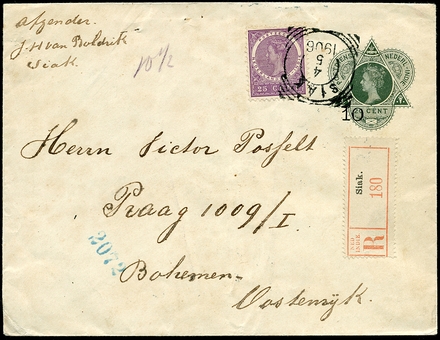 Afzender:
J.H van Boldrik
Siak.
10 1/2
25 CENT
SIAK
4
5
1906
NEDERL. INDIE
10
CENT
Herrn Victor Posselt
Praag 1009/I
Bohemen-
Oostenryk.
Siak.
180
NED.
INDIE
R